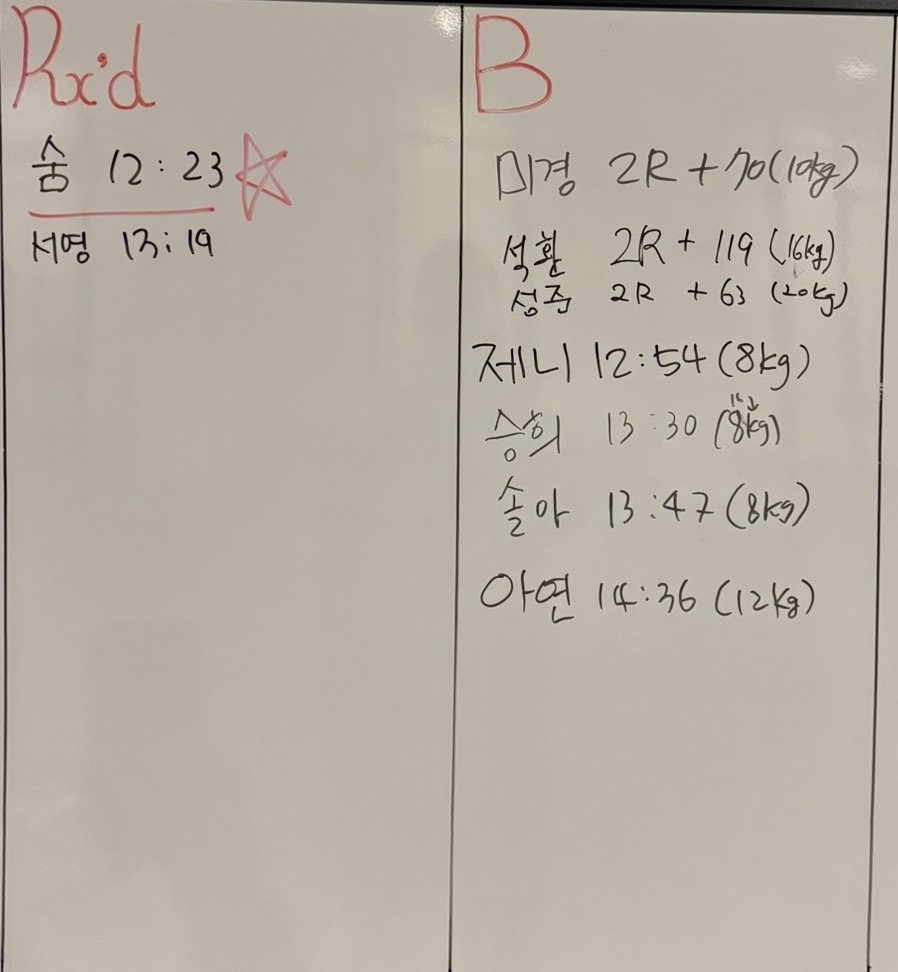 Rx'd
숨 12:23
서영 13:19
B
미경 2R + 70 (10kg)
석환 2R + 119 (16kg)
성준 2R + 63 (20kg)
제니 12:54 (8kg)
승희 13:30 (8kg)
솔아 13:47 (8kg)
아연 14:36 (12kg)